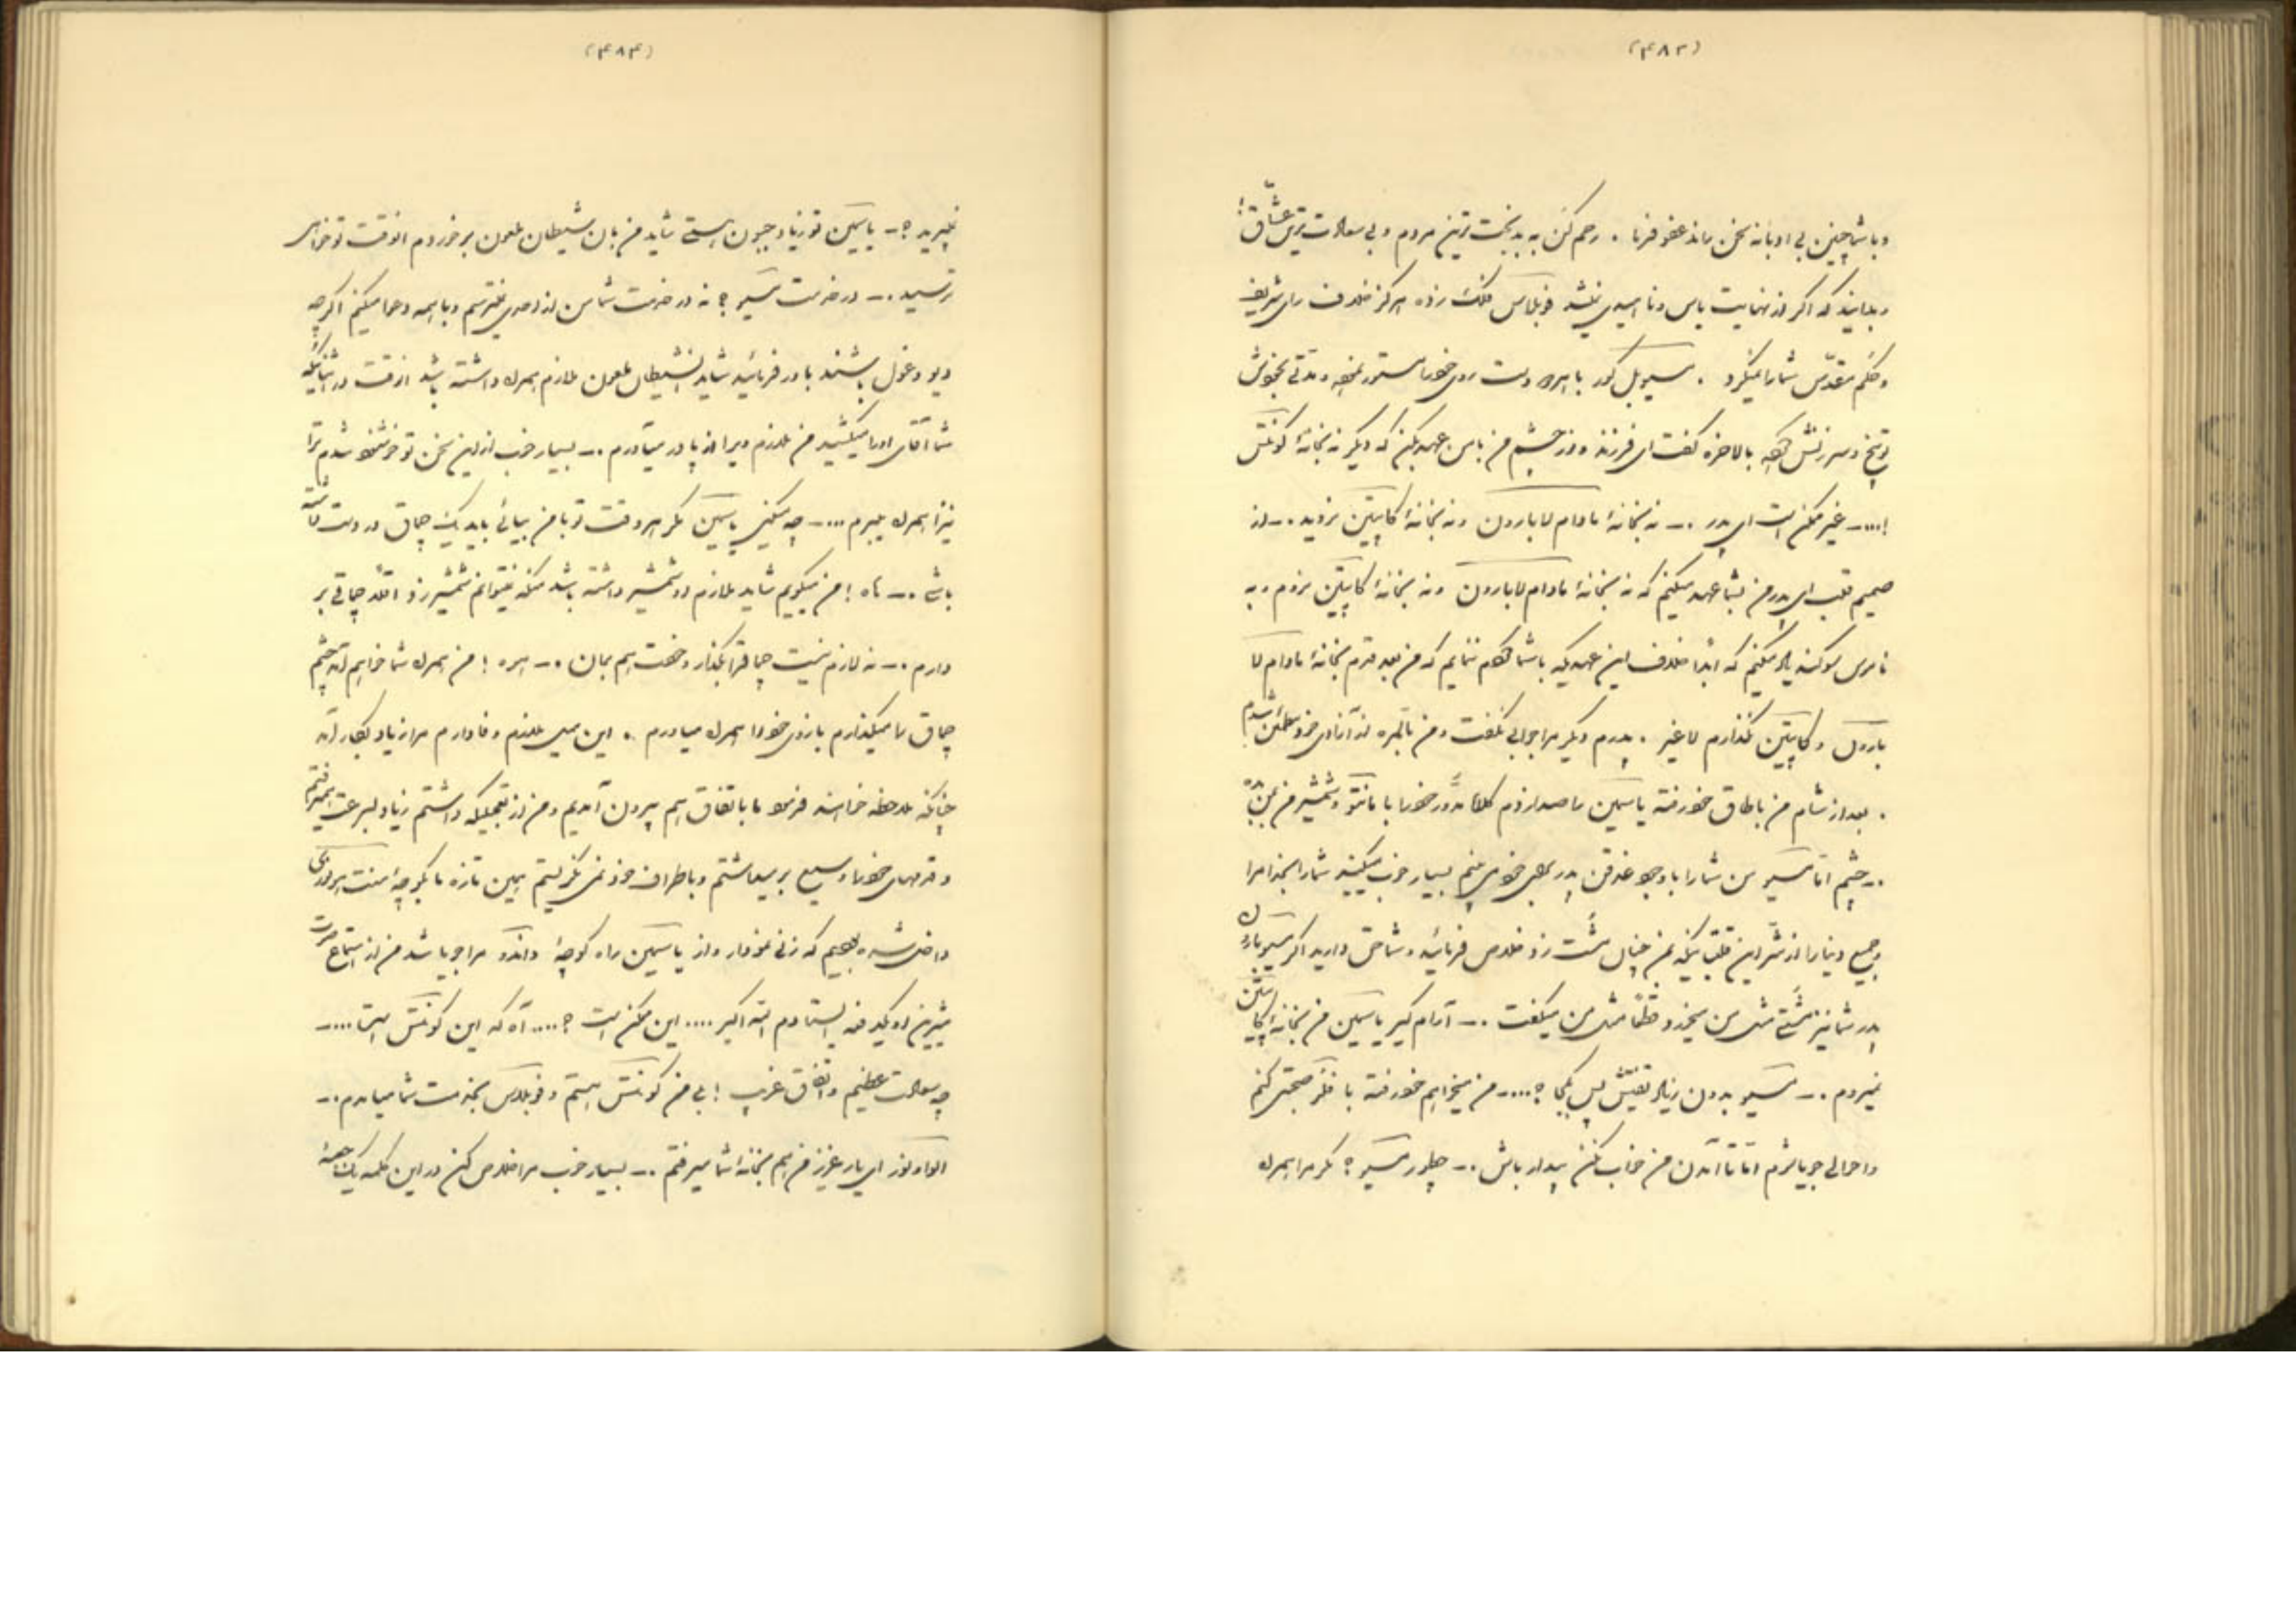 (۴۸۳)
و با شما چنین بی ادبانه سخن راند عفو فرما . رحم کن به بدبخت ترین مردم و بی سعادت ترین عشّاق !
و بدانید که اگر از نهایت یاس و نا امیدی نباشد فوبلاس کلنک زده هرگز خلاف رای شریف
و حکم مقدّس شما را نمیکرد . سیوبل کور با هر دو دست روی خود را مستور نموده مدّتی بخودش
توبیخ و سرزنش کرده بالاخره گفت ای فرزند و نور چشم من با من عهد بکن که دیگر نه بخانهٔ کونتس
!.... – غیر ممکن است ای پدر . – نه بخانهٔ مادام لا بارون و نه بخانهٔ کاپیتن نروید . – از
صمیم قلب ای پدر من بشما عهد میکنم که نه بخانهٔ مادام لا بارون و نه بخانهٔ کاپیتن نروم و به
نامری سوگند یاد میکنم که ابداً خلاف این عهدیکه با شما کردم ننمایم که من بعد قدم بخانهٔ مادام لا
بارون و کاپیتن نگذارم لا غیر . پدرم دیگر مرا جوابی نگفت و من بالمره از آزادی خود مطمئن شدم
. بعد از شام من باطاق خود رفته یاسمین را صدا زدم کلاه مدوّر خود را با مانتو و شمشیر من بمن بده
. – چشم امّا مسیو من شما را با وجود غدقن پدر بجای خود می بینم بسیار خوب میکنید شما را بخدا مرا
و جمیع دنیا را از شرّ این قلّب یکه بمن چنان مشت زد خلاص فرمائید و شما حق دارید اگر مسیو بارون
پدر شما نیز مشتی مثل من میخورد قطعاً مثل من میگفت . – آرام گیر یاسمین من بخانهٔ کاپیتن
نمیروم . – مسیو بدون زیاد تفتیش پس بکجا ؟.... – من میخواهم خود رفته با فلور صحبتی کنم
و احوالی جویا شوم امّا تا آمدن من خواب نکن بیدار باش . – چطور مسیو ؟ مگر مرا همراه
(۴۸۴)
نمیبرید ؟ – یاسمین تو زیاد جبون هستی شاید من بآن شیطان ملعون برخوردم آنوقت تو خواهی
ترسید . – در خدمت مسیو ؟ نه در خدمت شما من از احدی نمیترسم و با همه دعوا میکنم اگرچه
دیو و غول باشند باور فرمائید شاید آنشیطان ملعون ملازم همراه داشته باشد آنوقت در اثنائیکه
شما آقای او را میکشید من ملازم ویرا از پا در میآورم . – بسیار خوب از این سخن تو خوشنود شدم ترا
نیز همراه میبرم .... – چه میکنی یاسمین مگر هر وقت تو با من بیائی باید یک چماق در دست داشته
باشی . – آه ! من میگویم شاید ملازم او شمشیر داشته باشد منکه نمیتوانم شمشیر زد اقلّاً چماقی بر
دارم . – نه لازم نیست چماقرا بگذار و خودت هم بمان . – اهه ! من همراه شما خواهم آمد چشم
چماق را میگذارم بازوی خود را همراه میآورم . این سخن ملازم وفادارم مرا زیاد بکار آمد
چنانکه ملاحظه خواهید فرمود ما باتفاق هم بیرون آمدیم و من از تعجیلیکه داشتم زیاد بسرعت میرفتم
و قدمهای خود را وسیع بر میداشتم و باطراف خود نمی نگریستم همین تازه بکوچهٔ سنت هونوری
داخل شده بودیم که زنی نمودار و از یاسمین راه کوچهٔ واندوم را جویا شد من از استماع صوت
شیرین او یکدفعه ایستادم الله اکبر .... این ممکن است ؟.... آه که این کونتس است .... –
چه سعادت عظیم و اتفاق غریب ! بلی من کونتس هستم و فوبلاس بخدمت شما میآمدم . –
ای یار عزیز من هم بخانهٔ شما میرفتم . – بسیار خوب مرا خلاص کن در این کلمه یک جعبهٔ